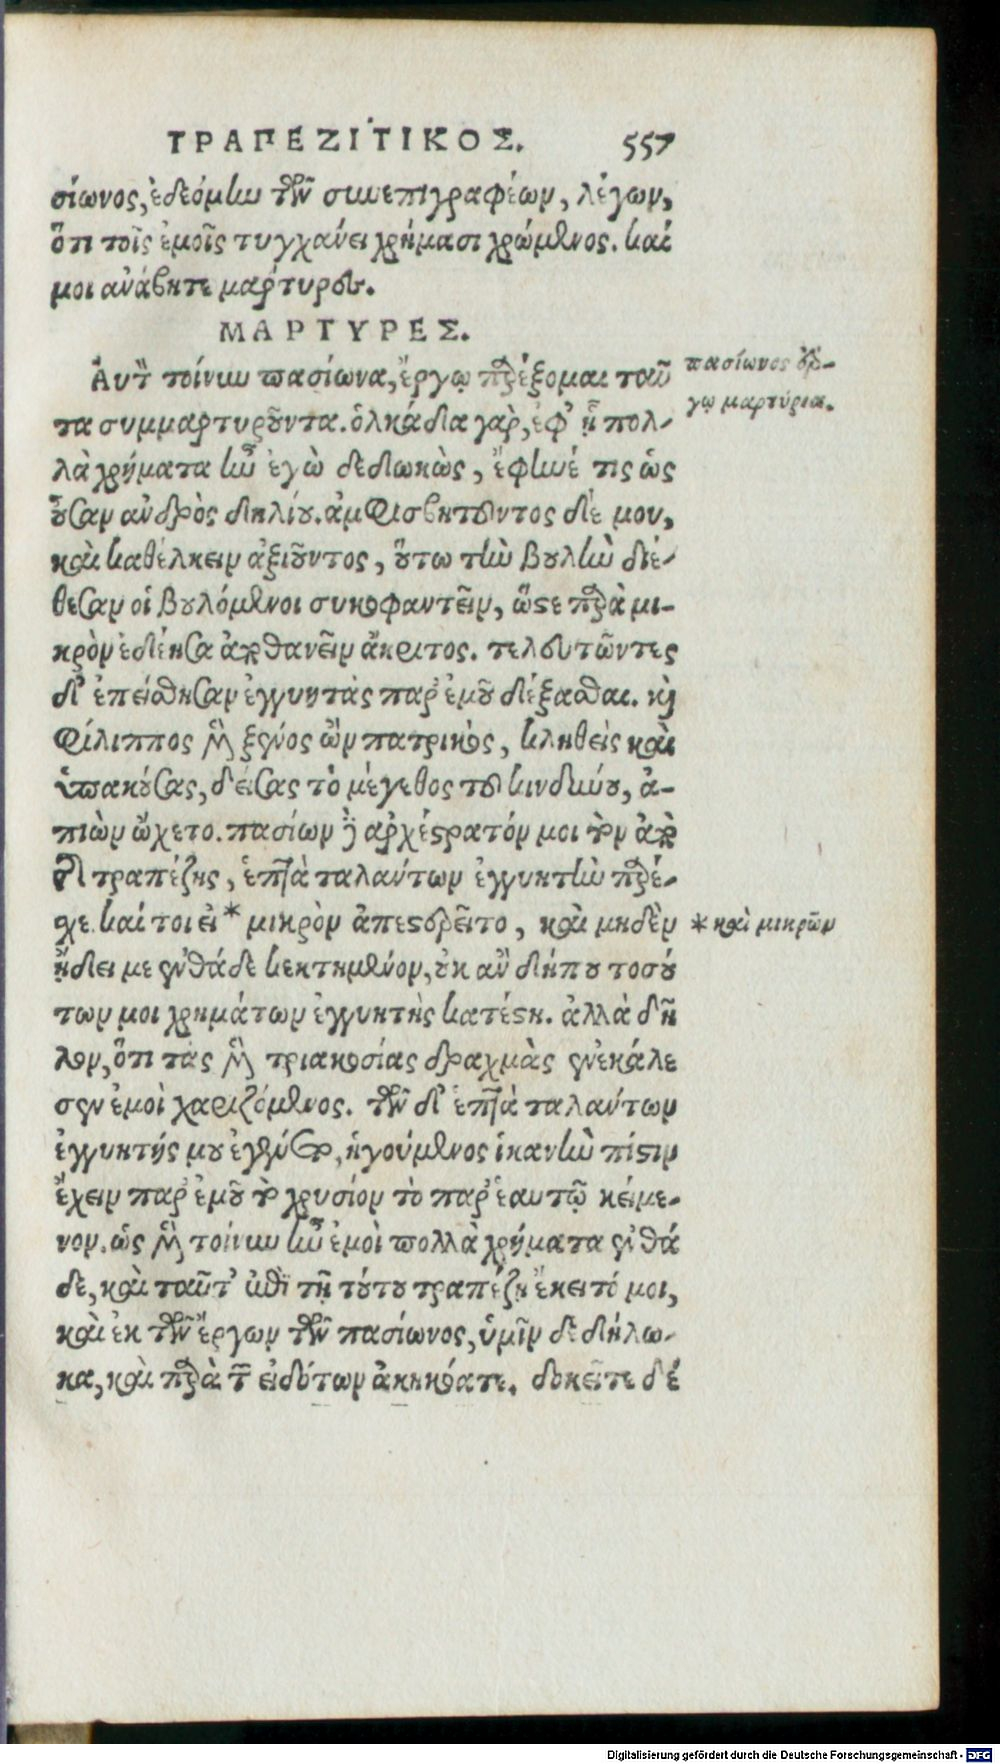 ΤΡΑΠΕΖΙΤΙΚΟΣ. 557
σίωνος, ἐδεόμην τῶν συνεπιγραφέων, λέγων,
ὅτι τοῖς ἐμοῖς τυγχάνει χρήμασι χρώμενος. καί
μοι ἀνάβητε μάρτυρες.
ΜΑΡΤΥΡΕΣ.
Αὐτὸν τοίνυν πασίωνα, ἔργῳ παρέξομαι ταῦ
τα συμμαρτυροῦντα. ὁλκάδια γὰρ, ἐφ' ᾗ πολ-
λὰ χρήματα ἦν ἐγὼ δεδωκὼς, ἔφηνέ τις ὡς
οὖσαν ἀνδρὸς δηλίου. ἀμφισβητοῦντος δέ μου,
καὶ καθέλκειν ἀξιοῦντος, οὕτω τὴν βουλὴν διέ-
θεσαν οἱ βουλόμενοι συκοφαντεῖν, ὥστε παρὰ μι-
κρὸν ἐδέησα ἀποθανεῖν ἄκριτος. τελευτῶντες
δ' ἐπείσθησαν ἐγγυητὰς παρ' ἐμοῦ δέξασθαι. καὶ
Φίλιππος μὲν ξένος ὢν πατρικὸς, κληθεὶς καὶ
ὑπακούσας, δείσας τὸ μέγεθος τοῦ κινδύνου, ἀ-
πιὼν ᾤχετο. πασίων δὲ ἀρχέστρατόν μοι τὸν ἀπὸ
τῆς τραπέζης, ἑπτὰ ταλάντων ἐγγυητὴν παρέ-
χε. καί τοι εἰ * μικρὸν ἀπεστρεῖτο, καὶ μηδὲν
ᾔδει με ἐνθάδε κεκτημένον, οὐκ ἂν δήπου τοσού
των μοι χρημάτων ἐγγυητὴς κατέστη. ἀλλὰ δῆ
λον, ὅτι τὰς μὲν τριακοσίας δραχμὰς ἐνεκάλε
σεν ἐμοὶ χαριζόμενος. τῶν δ' ἑπτὰ ταλάντων
ἐγγυητής μου ἐγένετο, ἡγούμενος ἱκανὴν πίστιν
ἔχειν παρ' ἐμοῦ τὸ χρυσίον τὸ παρ' ἑαυτῷ κείμε-
νον. ὡς μὲν τοίνυν ἦν ἐμοὶ πολλὰ χρήματα ἐνθά
δε, καὶ ταῦτ' ἐπὶ τῇ τούτου τραπέζῃ ἔκειτό μοι,
καὶ ἐκ τῶν ἔργων τῶν πασίωνος, ὑμῖν δεδήλω-
κα, καὶ παρὰ τῶν εἰδότων ἀκηκόατε. δοκεῖτε δέ
πασίωνος ἔρ-
γῳ μαρτύρια.
* καὶ μικρῶν
Digitalisierung gefördert durch die Deutsche Forschungsgemeinschaft - DFG